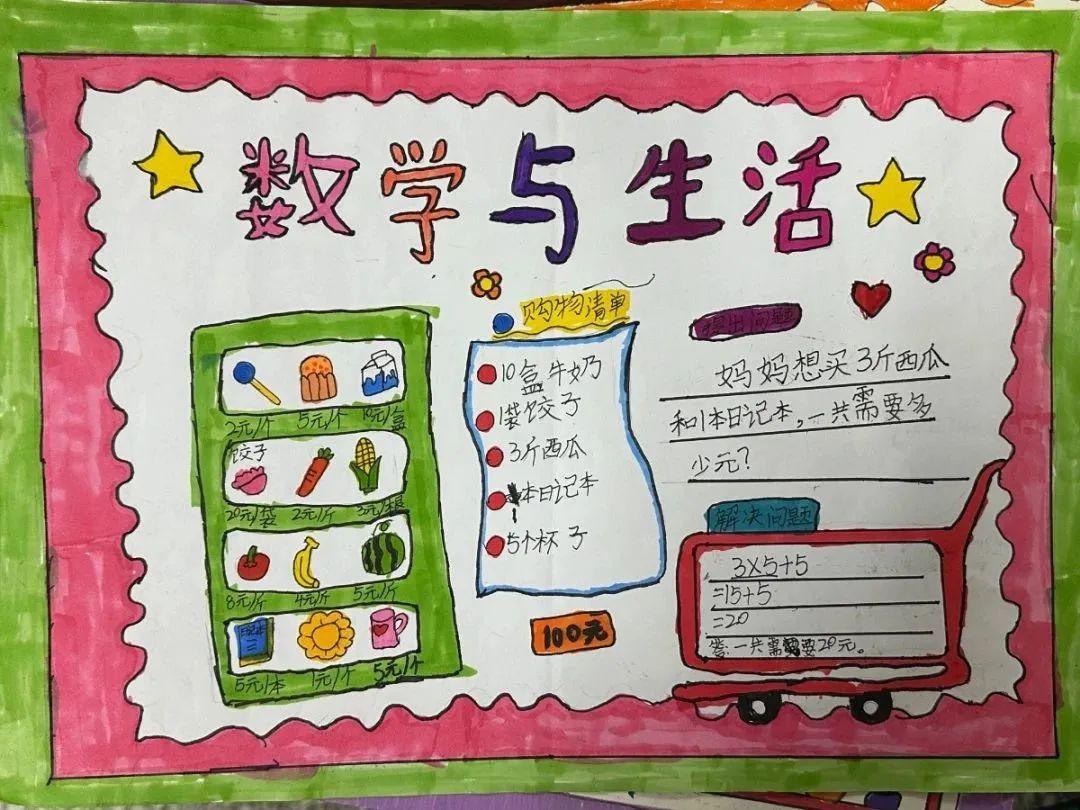 数学与生活
2元/个 5元/个 10元/盒
饺子
20元/袋 2元/斤 3元/根
8元/斤 4元/斤 5元/斤
日记本
5元/本 1元/个 5元/个
购物清单
10盒牛奶
1袋饺子
3斤西瓜
1本日记本
5个杯子
100元
提出问题
妈妈想买3斤西瓜
和1本日记本，一共需要多
少元？
解决问题
3×5+5
=15+5
=20
答：一共需要20元。